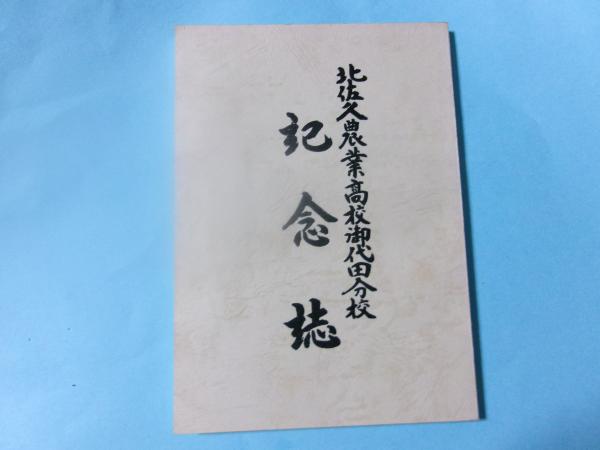 北佐久農業高校御代田分校
記念誌